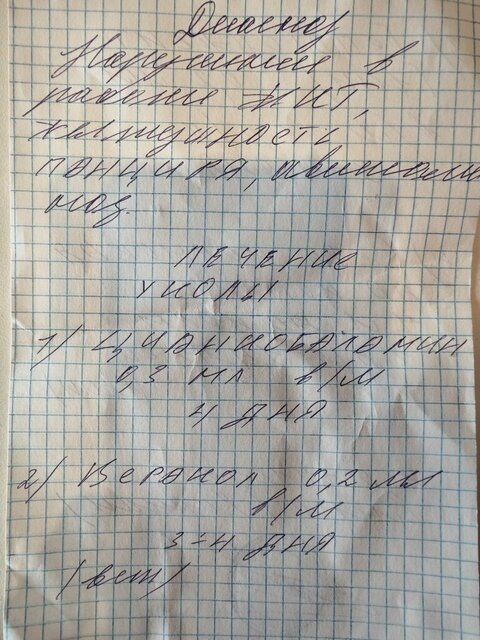 Диагноз
Нарушение в
работе ЖКТ,
панциря, авитами
ноз.
ЛЕЧЕНИЕ
УКОЛЫ
1/ ЦИАНКОБАЛАМИН
0,3 мл в/м
4 ДНЯ
2/ Веракол 0,2 мл
в/м
3-4 ДНЯ
(вет)